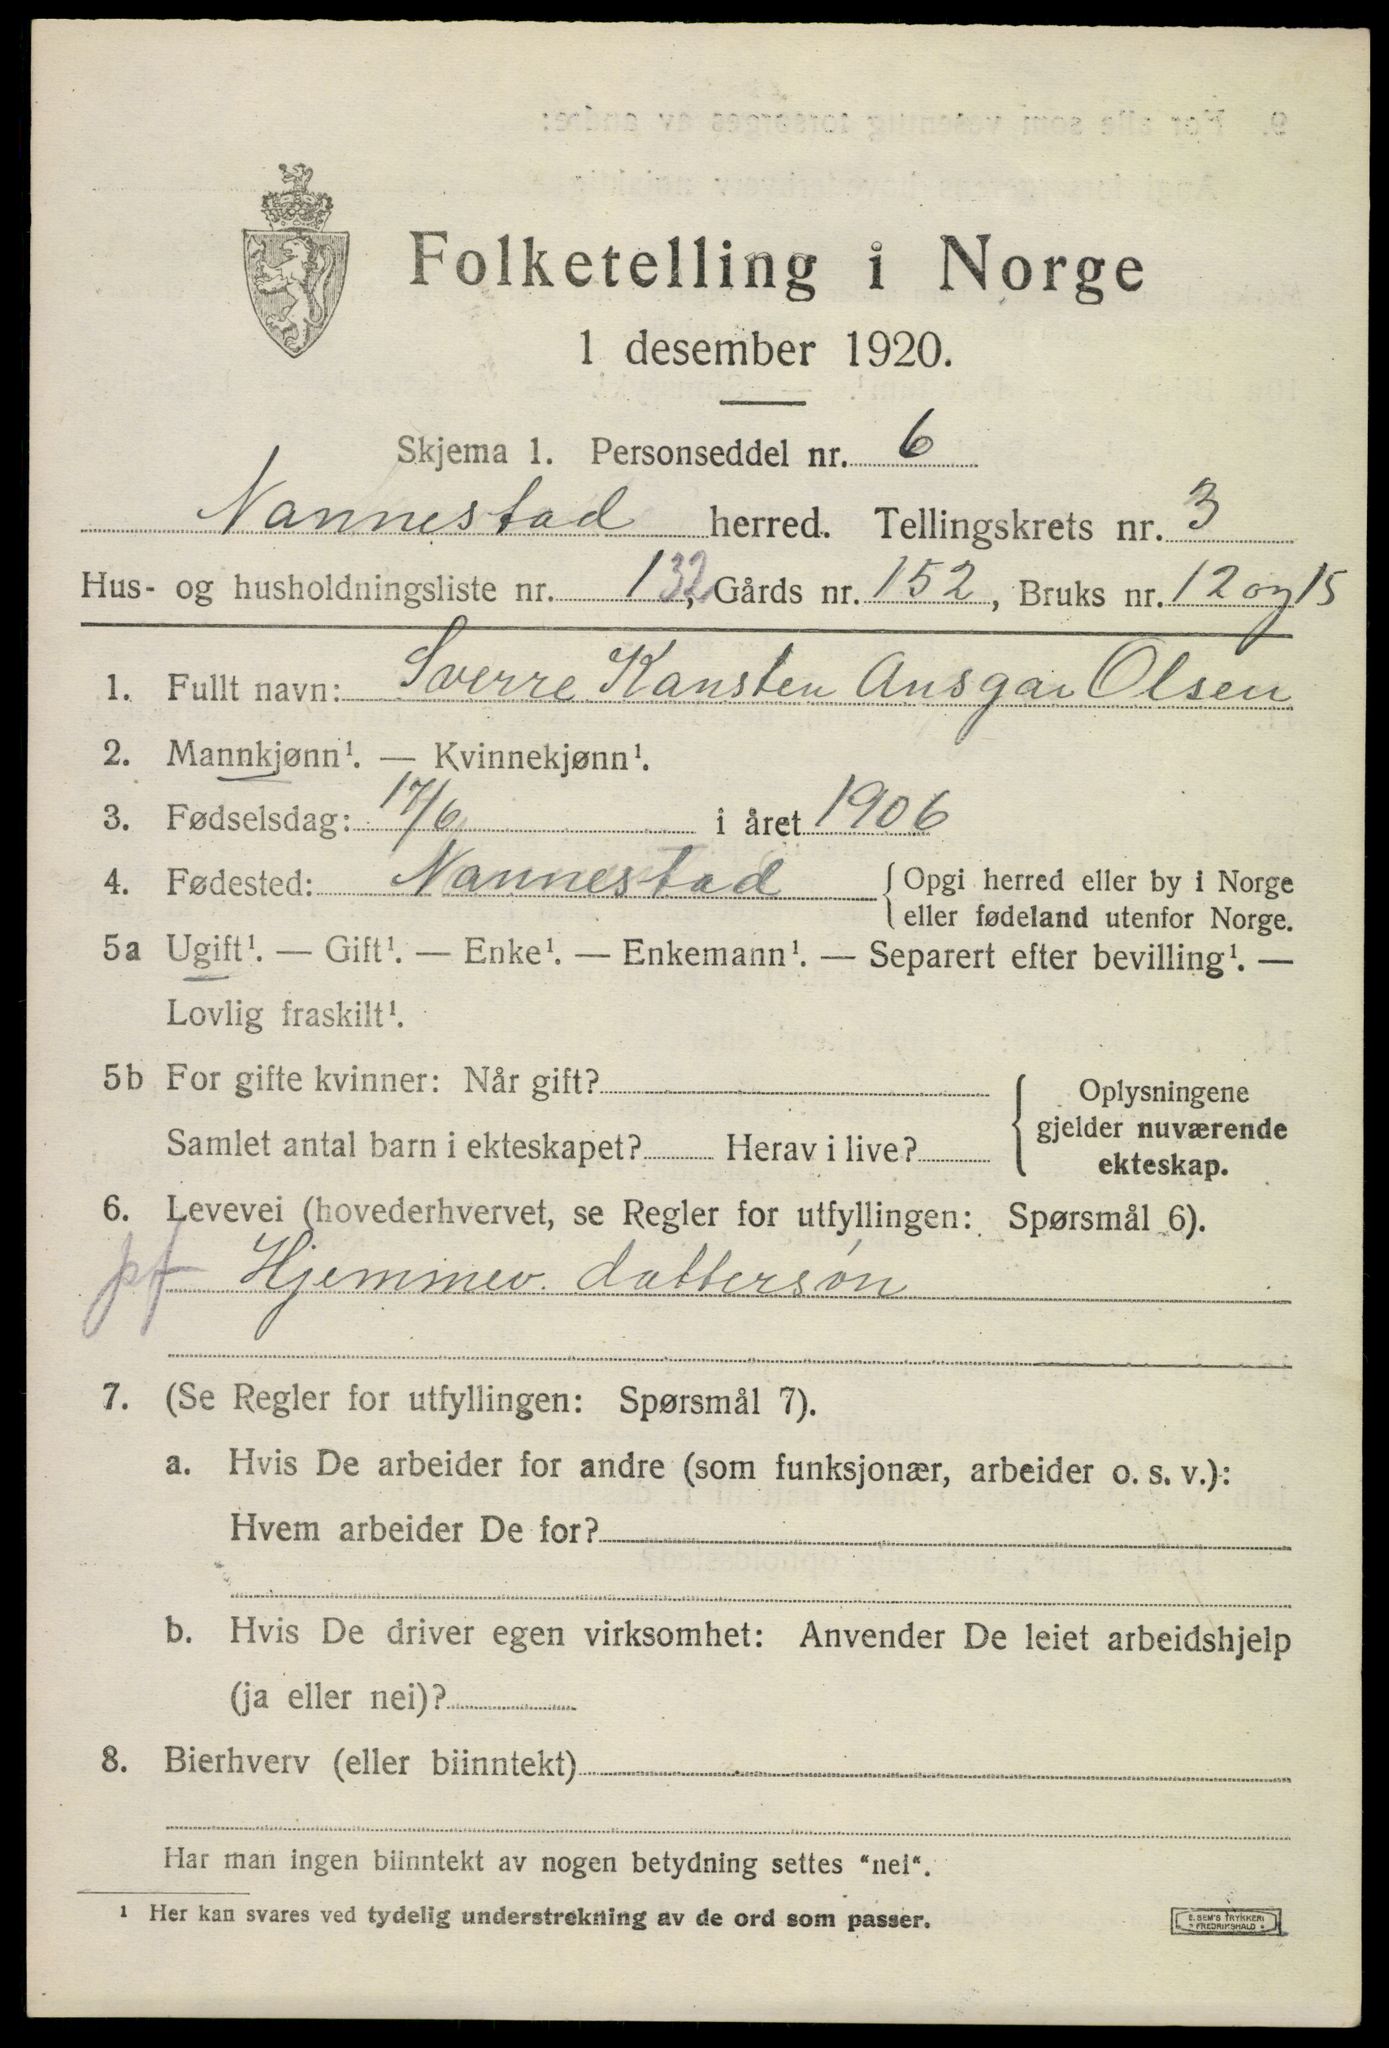 Folketelling i Norge
1 desember 1920.
Skjema 1. Personseddel nr. 6
Nannestad herred. Tellingskrets nr. 3
Hus- og husholdningsliste nr. 132, Gårds nr. 152, Bruks nr. 12 og 15
1. Fullt navn: Sverre Kansten Ansgar Olsen
2. Mannkjønn¹. — Kvinnekjønn¹.
3. Fødselsdag: 17/6 i året 1906
4. Fødested: Nannestad { Opgi herred eller by i Norge
eller fødeland utenfor Norge.
5a Ugift¹. — Gift¹. — Enke¹. — Enkemann¹. — Separert efter bevilling¹. —
Lovlig fraskilt¹.
5b For gifte kvinner: Når gift?
Samlet antal barn i ekteskapet? Herav i live?
{ Oplysningene
gjelder nuværende
ekteskap.
6. Levevei (hovederhvervet, se Regler for utfyllingen: Spørsmål 6).
pf Hjemmev. dattersøn
7. (Se Regler for utfyllingen: Spørsmål 7).
a. Hvis De arbeider for andre (som funksjonær, arbeider o. s. v.):
Hvem arbeider De for?
b. Hvis De driver egen virksomhet: Anvender De leiet arbeidshjelp
(ja eller nei)?
8. Bierhverv (eller biinntekt)
Har man ingen biinntekt av nogen betydning settes "nei".
¹ Her kan svares ved tydelig understrekning av de ord som passer.
E. SEM'S TRYKKERI
FREDRIKSHALD